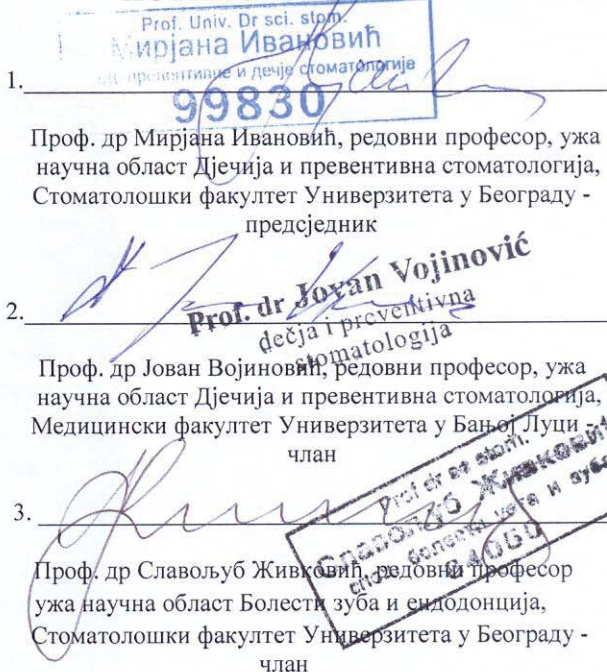 Prof. Univ. Dr sci. stom.
Мирјана Ивановић
превентивне и дечје стоматологије
99830
1.
Проф. др Мирјана Ивановић, редовни професор, ужа
научна област Дјечија и превентивна стоматологија,
Стоматолошки факултет Универзитета у Београду -
предсједник
Prof. dr Jovan Vojinović
dečja i preventivna
stomatologija
2.
Проф. др Јован Војиновић, редовни професор, ужа
научна област Дјечија и превентивна стоматологија,
Медицински факултет Универзитета у Бањој Луци -
члан
Prof dr sc stom.
Славољуб Живковић
болести уста и зуба
3.
Проф. др Славољуб Живковић, редовни професор
ужа научна област Болести зуба и ендодонција,
Стоматолошки факултет Универзитета у Београду -
члан